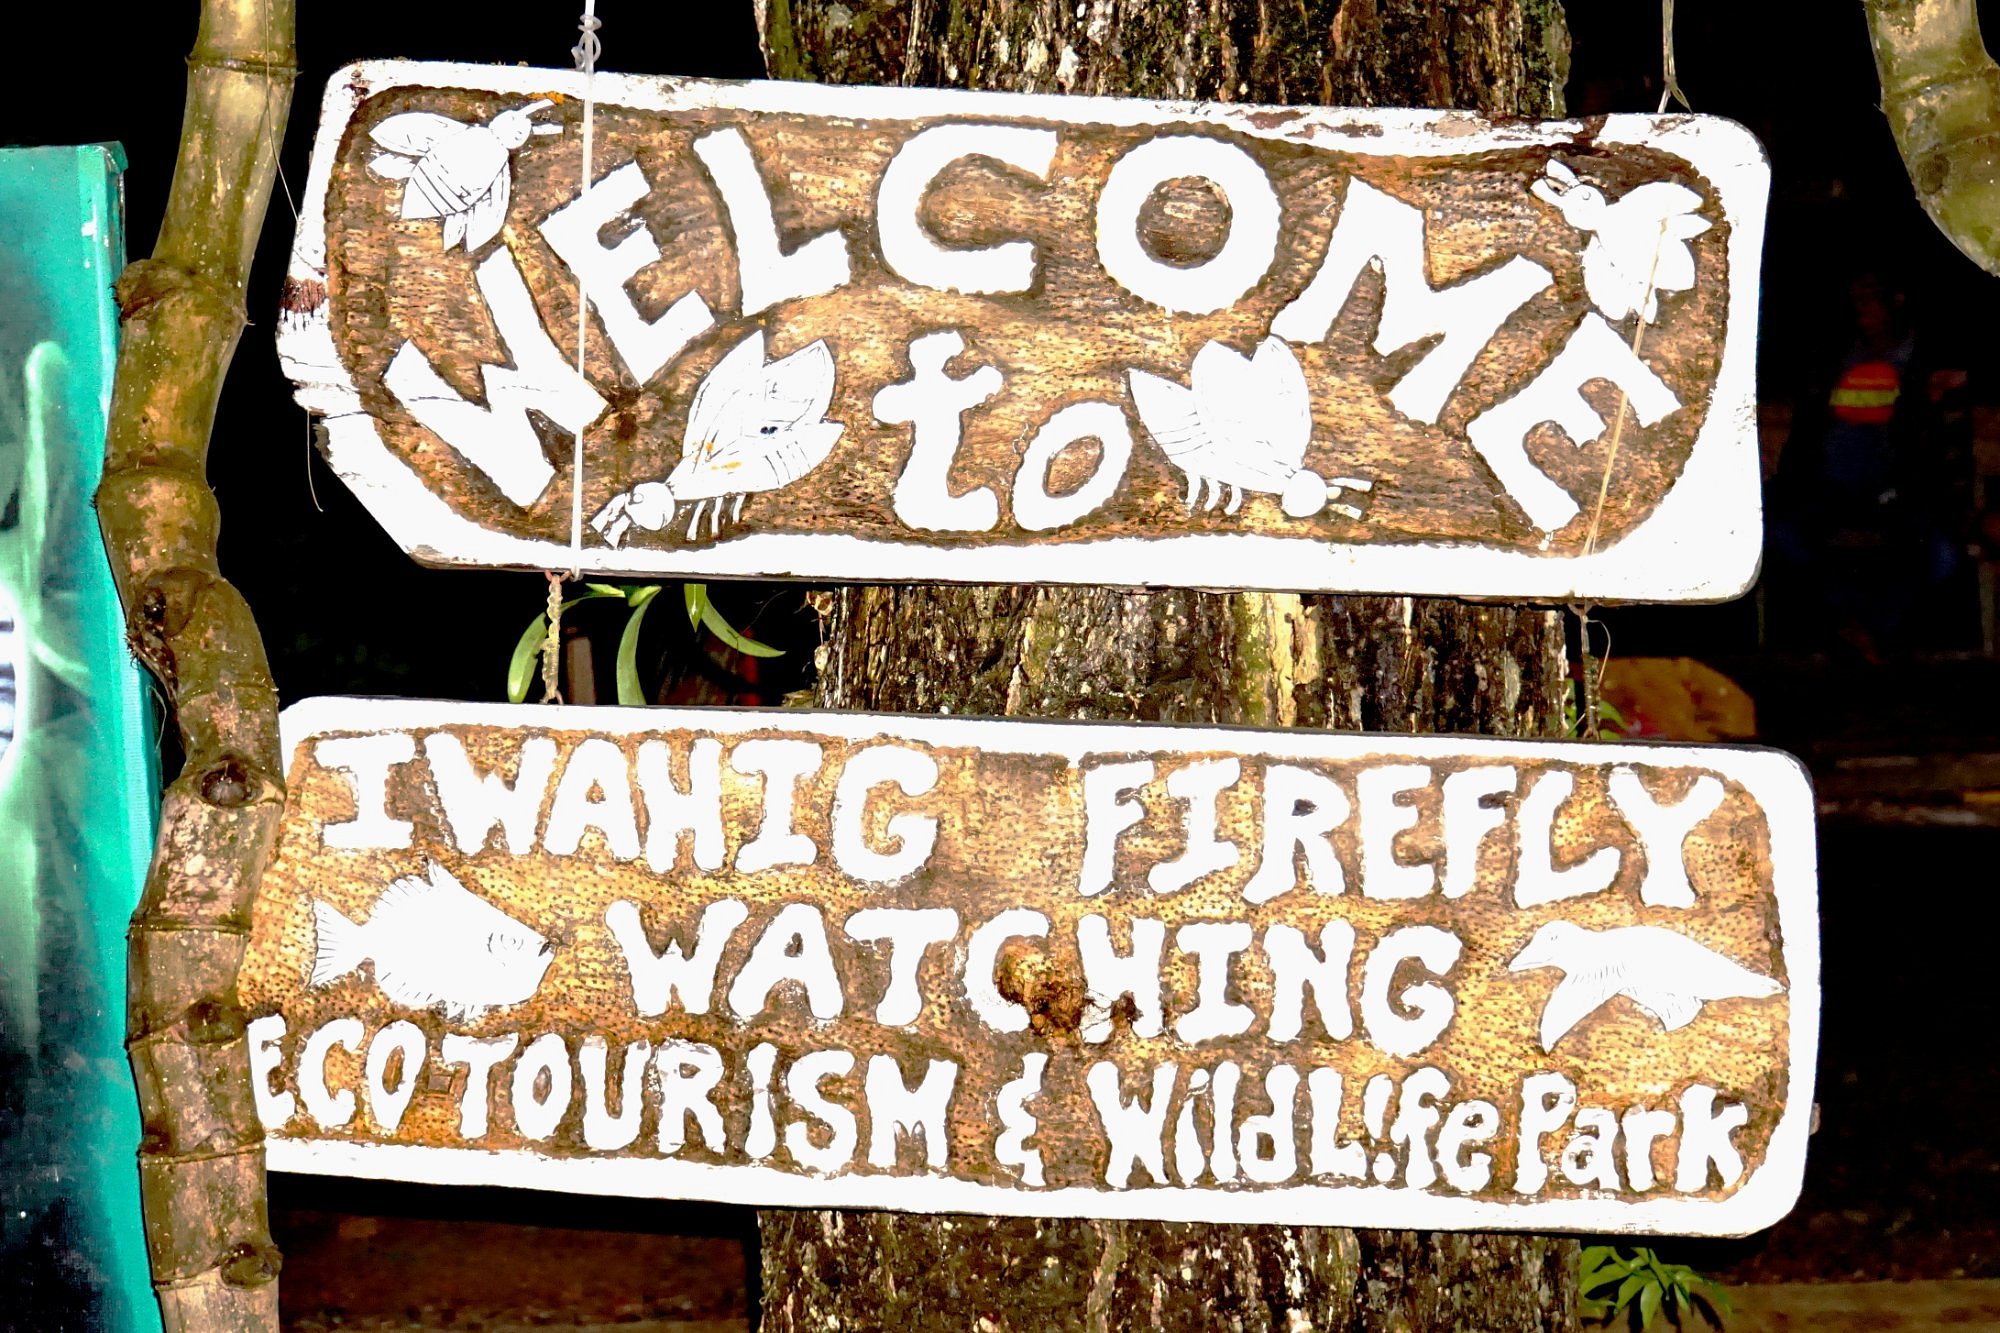 WELCOME
to
IWAHIG FIREFLY
WATCHING
ECOTOURISM & WildLife Park